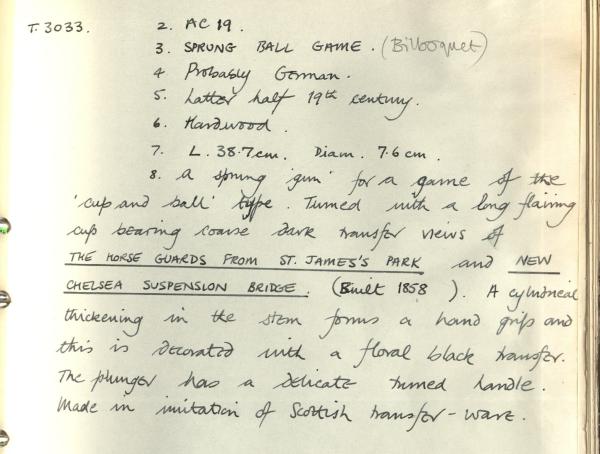 T. 3033. 2. AC 19.
3. SPRUNG BALL GAME. (Bilboquet)
4 Probably German.
5. Latter half 19th century.
6. Hardwood.
7. L. 38.7cm. Diam. 7.6 cm.
8. A sprung 'gun' for a game of the
'cup and ball' type. Turned with a long flaring
cup bearing coarse dark transfer views of
THE HORSE GUARDS FROM ST. JAMES'S PARK and NEW
CHELSEA SUSPENSION BRIDGE. (Built 1858 ). A cylindrical
thickening in the stem forms a hand grip and
this is decorated with a floral black transfer.
The plunger has a delicate turned handle.
Made in imitation of Scottish transfer-ware.